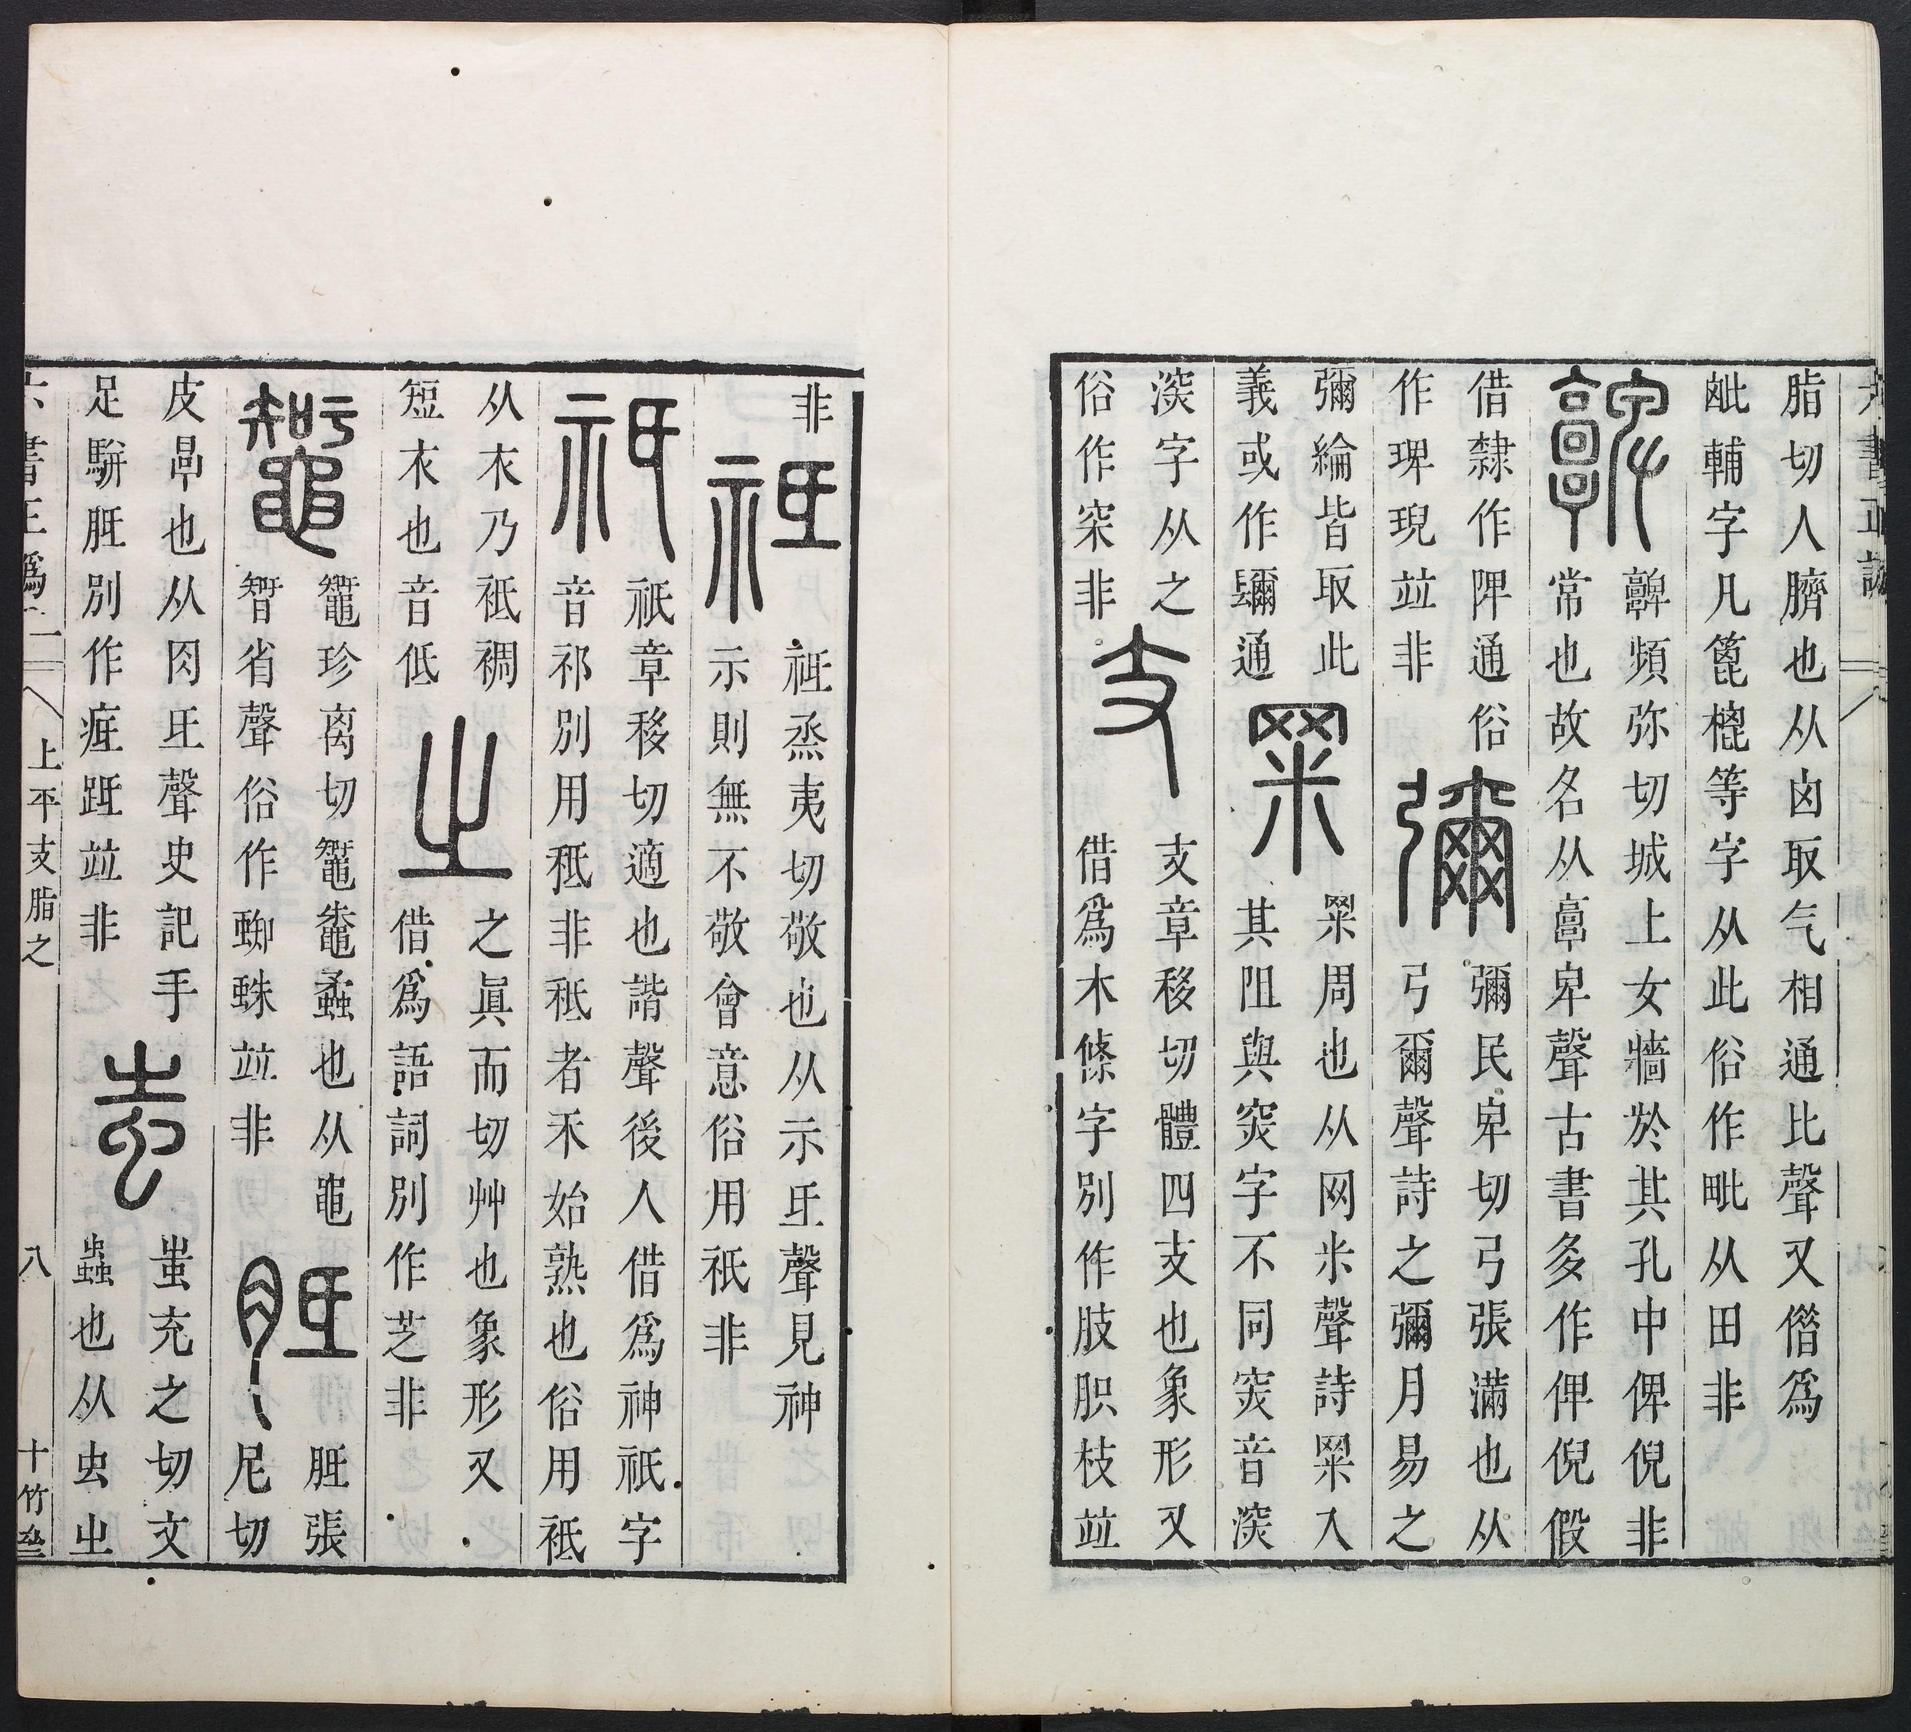 六書正譌
脂切人臍也从囟取气相通比聲又借爲
毗輔字凡篦槐等字从此俗作毗从田非
𩫫頻弥切城上女牆於其孔中俾倪非
常也故名从𩫏卑聲古書多作俾倪假
借隸作陴通俗
作琕琔竝非
彌民卑切弓張滿也从
弓爾聲詩之彌月易之
彌綸皆取此
義或作镾通
冞周也从网米聲詩冞入
其阻與突字不同突音深
深字从之
俗作罙非
支章移切體四支也象形又
借爲木條字別作肢胑枝竝
非
祗烝夷切敬也从示氐聲見神
示則無不敬會意俗用祇非
祇章移切適也諧聲後人借爲神祇字
音祁別用秖非秖者禾始熟也俗用袛
从衣乃袛裯
短衣也音低
之眞而切艸也象形又
借爲語詞別作芝非
鼅珍离切鼅鼄蟊也从黽
智省聲俗作蜘蛛竝非
胝張
尼切
皮㫗也从肉氐聲史記手
足騈胝別作疷跮竝非
蚩充之切文
蟲也从虫㞢
六書正譌 上平支脂之 八 十竹齋